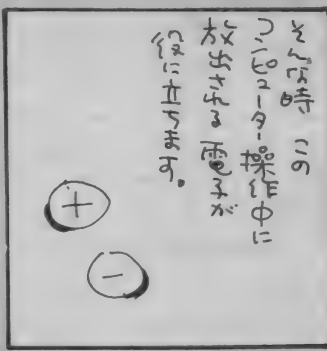 そんな時 この
コンピューター操作中に
放出される電子が
役に立ちます。
+
−